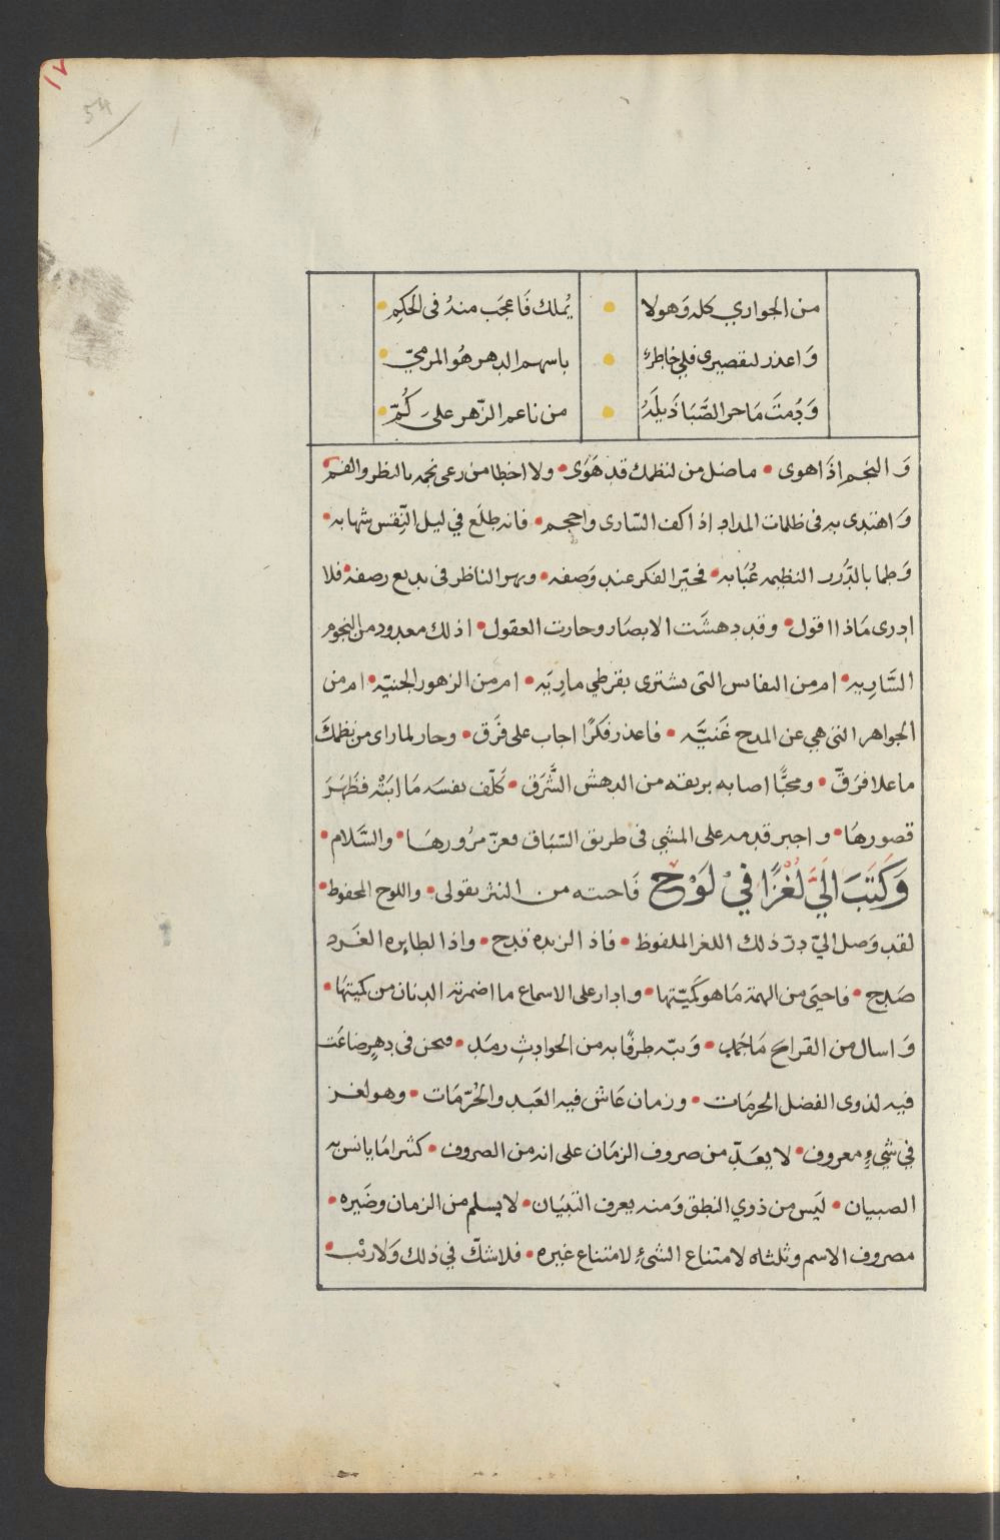 ١٧
54
من الجواري كله وهو لا • يُملك فَاعجَب منهُ فى الحكِم •
وَاعذر لتقصيرى فلى خاطرٌ • باسهم الدهر هُو المرمىّ •
وَدُمتَ مَا جر الصَّبَا ذَيلَهُ • من ناعم الزّهر على كُمّ •
وَالنجم اذَا هوى • ماضل من لنظمك قد هَوَى • ولا اخطا من رعى نجمه بالنظر والفهم
وَاهتدى به فى ظلمات المداد اذا كف السَّارى واحجم • فانه طلَع في ليل النِّقس شهابه •
وَطما بالدُّرر النظيمه عُبَابه • فحيّر الفكر عند وَصفه • وبهر الناظر فى بديع رصفه • فلا
ادرى مَاذا اقول • وقد دهشَت الابصَار وحارت العقول • اذلك معدود من النجوم
السَّاريه • ام من النفايس التى تشترى بقرطي ماريَه • ام من الزهور الجنيّه • ام من
الجواهر التى هي عن المدح غَنيَّه • فاعذر فكرًا اجاب على فَرَق • وحار لما راى من نظمكَ
ماعلا فرَقّ • ومحبًّا اصابه بريقه من الدهش الشَّرَق • كَلّف نفسَه مَا ابَتْه فظَهَرَ
قصورهَا • واجبر قدمه على المشي فى طريق السّبَاق فعزّ مرُورهَا • والسَّلام •
وَكَتَبَ اليَّ لُغْزًا فيْ لوَْح فَاجبته من النثر بقولى • واللوح المحفوظ •
لقد وَصل اليّ درّ ذلك اللغز الملفوظ • فاذا الزند قدح • واذا الطاير الغَرد
صَدح • فاحيَى من الهمة مَاهو كَميّتها • وادار على الاسماع ما اضمرته الدنان من كميتهَا •
وَاسال من القرايح مَا جَمد • وَنبّه طرفًا به من الحوادثِ رمَد • فنحن فى دهرٍ ضاعَت
فيه لذوى الفضل الحرمَات • وزمان عَاش فيه العَبد والحُرّ مَات • وهو لغز
في شيءٍ معروف • لا يعَدّ من صروف الزمَان على انه من الصروف • كثيرامَا يانس به
الصبيان • ليَس من ذوي النطق وَمنه يعرف التبيَان • لا يسلم من الزمان وضَيره •
مصروف الاسم وثلثاه لامتناع الشىءِ لامتناع غيره • فلا شكّ في ذلك وَلا ريْب •